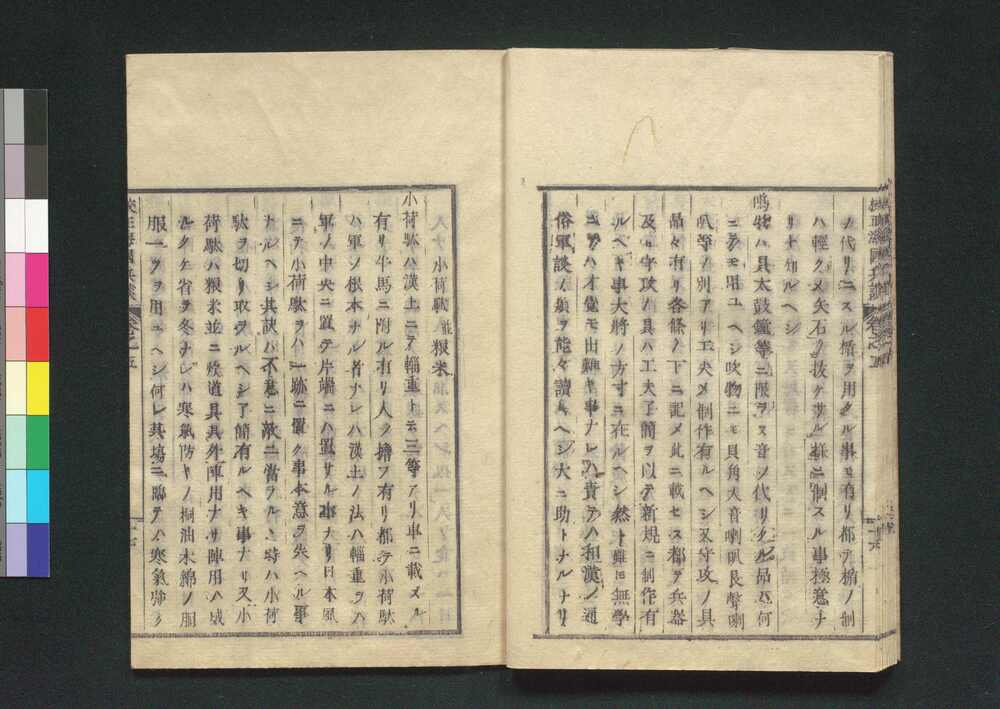 ノ代リニスル楯ヲ用タル事モ有リ都テ楯ノ制
ハ輕クメ矢石ノ抜ケサル樣ニ制スル事極意ナ
リト知ルヘシ
鳴物ハ具太鼓鐘等ニ限ラス音ノ代リタル品ハ何
ニテモ用ユヘシ吹物ニモ貝角大音喇叭長聲喇
叭等ノ別アリ工夫メ制作有ルヘシ又守攻ノ具
品々有リ各條ノ下ニ記メ此ニ載セス都テ兵器
及ヒ守攻ノ具ハ工夫了簡ヲ以テ新規ニ制作有
ルヘキ事大將ノ方寸ニ在ルヘシ然トモ無學
ニテハ才覺モ出難キ事ナレハ貴テハ和漢ノ通
俗軍談ノ類ヲ能々讀ムヘシ大ニ助トナルナリ
海國兵談 卷之五 十六
小荷駄 並 粮米
小荷駄ハ漢土ニテ輜重ト云三等アリ車ニ載メル
有リ牛馬ニ附ル有リ人ノ擔フ有リ都テ小荷駄
ハ軍ノ根本ナル者ナレハ漢土ノ法ハ輜重ヲハ
軍ノ中央ニ置テ片端ニハ置サル事ナリ日本風
ニテ小荷駄ヲハ一跡ニ置ク事本意ヲ失ヘル事
ナルヘシ其訣ハ不意ニ敵ニ當ラルヽ時ハ小荷
駄ヲ切リ取ラルヘシ了簡有ルヘキ事ナリ又小
荷駄ハ粮米並ニ炊道具其外陣用ナリ陣用ハ成
ルタケ省ヲ冬ナレハ寒氣防キノ桐油木綿ノ胴
服一ツヲ用ユヘシ何レ其場ニ臨テハ寒氣障ラ
海國兵談 卷之五